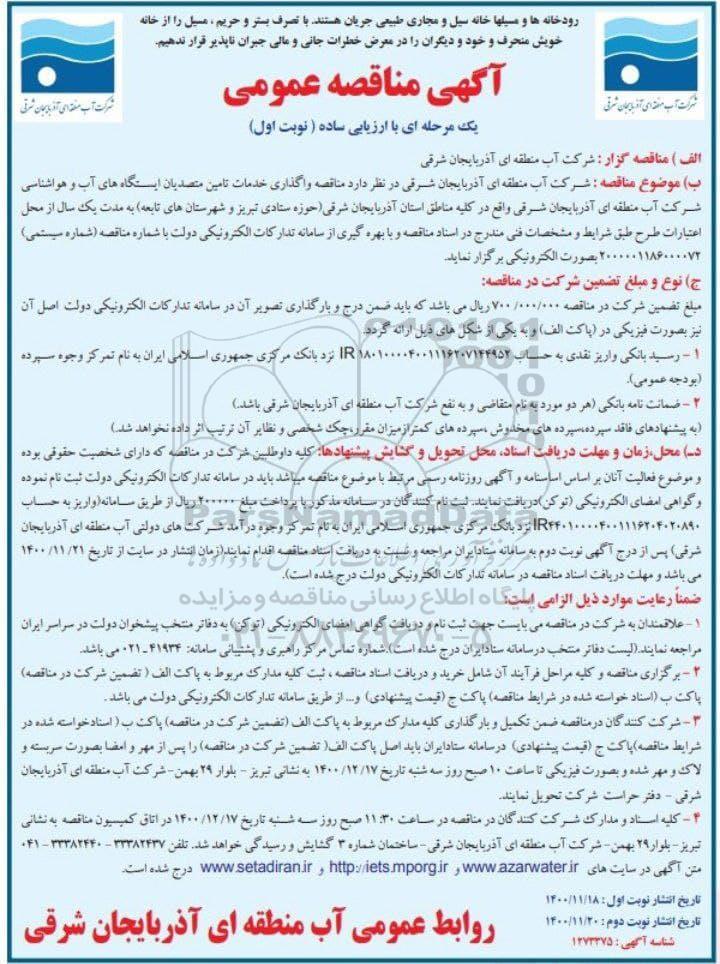 رودخانه ها و مسیلها خانه سیل و مجاری طبیعی جریان هستند. با تصرف بستر و حریم ، مسیل را از خانه
خویش منحرف و خود و دیگران را در معرض خطرات جانی و مالی جبران ناپذیر قرار ندهیم.
شرکت آب منطقه ای آذربایجان شرقی
شرکت آب منطقه ای آذربایجان شرقی
آگهی مناقصه عمومی
یک مرحله ای با ارزیابی ساده ( نوبت اول)
الف ) مناقصه گزار : شرکت آب منطقه ای آذربایجان شرقی
ب) موضوع مناقصه : شرکت آب منطقه ای آذربایجان شرقی در نظر دارد مناقصه واگذاری خدمات تامین متصدیان ایستگاه های آب و هواشناسی
شرکت آب منطقه ای آذربایجان شرقی واقع در کلیه مناطق استان آذربایجان شرقی(حوزه ستادی تبریز و شهرستان های تابعه) به مدت یک سال از محل
اعتبارات طرح طبق شرایط و مشخصات فنی مندرج در اسناد مناقصه و با بهره گیری از سامانه تدارکات الکترونیکی دولت با شماره مناقصه (شماره سیستمی)
۲۰۰۰۰۰۱۱۸۶۰۰۰۰۷۲ بصورت الکترونیکی برگزار نماید.
ج) نوع و مبلغ تضمین شرکت در مناقصه:
مبلغ تضمین شرکت در مناقصه ۷۰۰/۰۰۰/۰۰۰ ریال می باشد که باید ضمن درج و بارگذاری تصویر آن در سامانه تدارکات الکترونیکی دولت اصل آن
نیز بصورت فیزیکی در (پاکت الف) و به یکی از شکل های ذیل ارائه گردد.
۱ - رسید بانکی واریز نقدی به حساب IR ۱۸۰۱۰۰۰۰۴۰۰۱۱۱۶۲۰۷۱۴۴۹۵۲ نزد بانک مرکزی جمهوری اسلامی ایران به نام تمرکز وجوه سپرده
(بودجه عمومی).
۲ - ضمانت نامه بانکی (هر دو مورد به نام متقاضی و به نفع شرکت آب منطقه ای آذربایجان شرقی باشد.)
(به پیشنهادهای فاقد سپرده،سپرده های مخدوش ،سپرده های کمترازمیزان مقرر،چک شخصی و نظایر آن ترتیب اثر داده نخواهد شد.)
د) محل،زمان و مهلت دریافت اسناد، محل تحویل و گشایش پیشنهادها: کلیه داوطلبین شرکت در مناقصه که دارای شخصیت حقوقی بوده
و موضوع فعالیت آنان بر اساس اساسنامه و آگهی روزنامه رسمی مرتبط با موضوع مناقصه میباشد باید در سامانه تدارکات الکترونیکی دولت ثبت نام نموده
و گواهی امضای الکترونیکی (توکن)دریافت نمایند. ثبت نام کنندگان در سامانه مذکور با پرداخت مبلغ ۲۰۰۰۰۰۰ ریال از طریق سامانه(واریز به حساب
IR۴۴۰۱۰۰۰۰۴۰۰۱۱۱۶۲۰۴۰۲۰۸۹۰ نزد بانک مرکزی جمهوری اسلامی ایران به نام تمرکز وجوه درآمد شرکت های دولتی آب منطقه ای آذربایجان
شرقی) پس از درج آگهی نوبت دوم به سامانه ستادایران مراجعه و نسبت به دریافت اسناد مناقصه اقدام نمایند(زمان انتشار در سایت از تاریخ ۱۴۰۰/۱۱/۲۱
می باشد و مهلت دریافت اسناد مناقصه در سامانه تدارکات الکترونیکی دولت درج شده است).
ضمناً رعایت موارد ذیل الزامی است:
۱ - علاقمندان به شرکت در مناقصه می بایست جهت ثبت نام و دریافت گواهی امضای الکترونیکی (توکن) به دفاتر منتخب پیشخوان دولت در سراسر ایران
مراجعه نمایند.(لیست دفاتر منتخب درسامانه ستادایران درج شده است).شماره تماس مرکز راهبری و پشتیبانی سامانه: ۴۱۹۳۴ - ۰۲۱ می باشد.
۲ - برگزاری مناقصه و کلیه مراحل فرآیند آن شامل خرید و دریافت اسناد مناقصه ، ثبت کلیه مدارک مربوط به پاکت الف ( تضمین شرکت در مناقصه)
پاکت ب (اسناد خواسته شده در شرایط مناقصه) پاکت ج (قیمت پیشنهادی) و... از طریق سامانه تدارکات الکترونیکی دولت می باشد .
۳ - شرکت کنندگان درمناقصه ضمن تکمیل و بارگذاری کلیه مدارک مربوط به پاکت الف (تضمین شرکت در مناقصه) پاکت ب ( اسنادخواسته شده در
شرایط مناقصه)پاکت ج (قیمت پیشنهادی) درسامانه ستادایران باید اصل پاکت الف( تضمین شرکت در مناقصه) را پس از مهر و امضا بصورت سربسته و
لاک و مهر شده و بصورت فیزیکی تا ساعت ۱۰ صبح روز سه شنبه تاریخ ۱۴۰۰/۱۲/۱۷ به نشانی تبریز - بلوار ۲۹ بهمن- شرکت آب منطقه ای آذربایجان
شرقی - دفتر حراست شرکت تحویل نمایند.
۴ - کلیه اسناد و مدارک شرکت کنندگان در مناقصه در ساعت ۱۱:۳۰ صبح روز سه شنبه تاریخ ۱۴۰۰/۱۲/۱۷ در اتاق کمیسیون مناقصه به نشانی
تبریز - بلوار ۲۹ بهمن- شرکت آب منطقه ای آذربایجان شرقی- ساختمان شماره ۳ گشایش و رسیدگی خواهد شد. تلفن ۳۳۳۸۲۴۳۷ - ۳۳۳۸۲۴۴۰ - ۰۴۱
متن آگهی در سایت های www.azarwater.ir و http://iets.mporg.ir و www.setadiran.ir درج شده است.
تاریخ انتشار نوبت اول : ۱۴۰۰/۱۱/۱۸
تاریخ انتشار نوبت دوم : ۱۴۰۰/۱۱/۲۰
شناسه آگهی : ۱۲۷۳۳۷۵
روابط عمومی آب منطقه ای آذربایجان شرقی
ParsNamadData
پایگاه اطلاع رسانی مناقصه و مزایده
۰۲۱-۸۸۳۴۹۶۷۰-۵